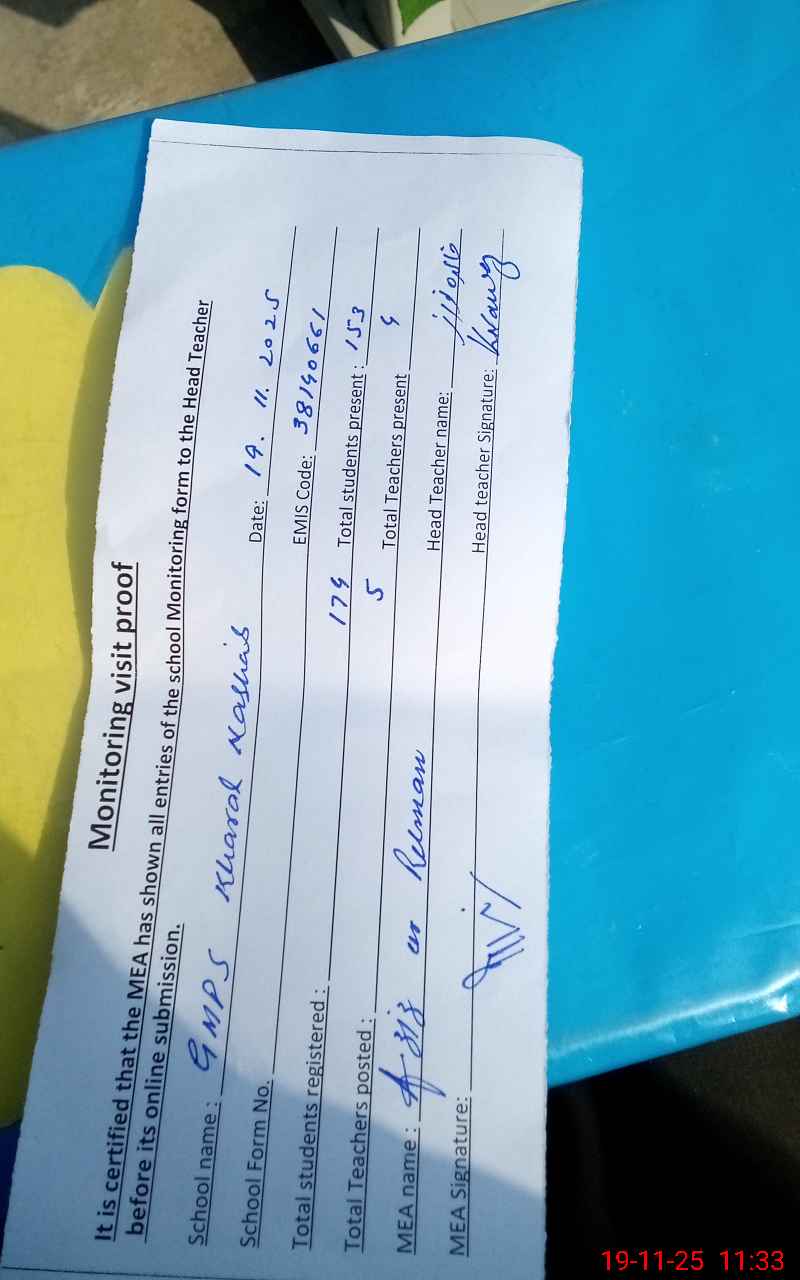 Monitoring visit proof
It is certified that the MEA has shown all entries of the school Monitoring form to the Head Teacher
before its online submission.
School name : GMPS Kharal Nashaib Date: 19. 11. 2025
School Form No. EMIS Code: 38140661
Total students registered : 174 Total students present : 153
Total Teachers posted : 5 Total Teachers present 4
MEA name : Aziz ur Rehman Head Teacher name:
MEA Signature: Head teacher Signature:
19-11-25 11:33